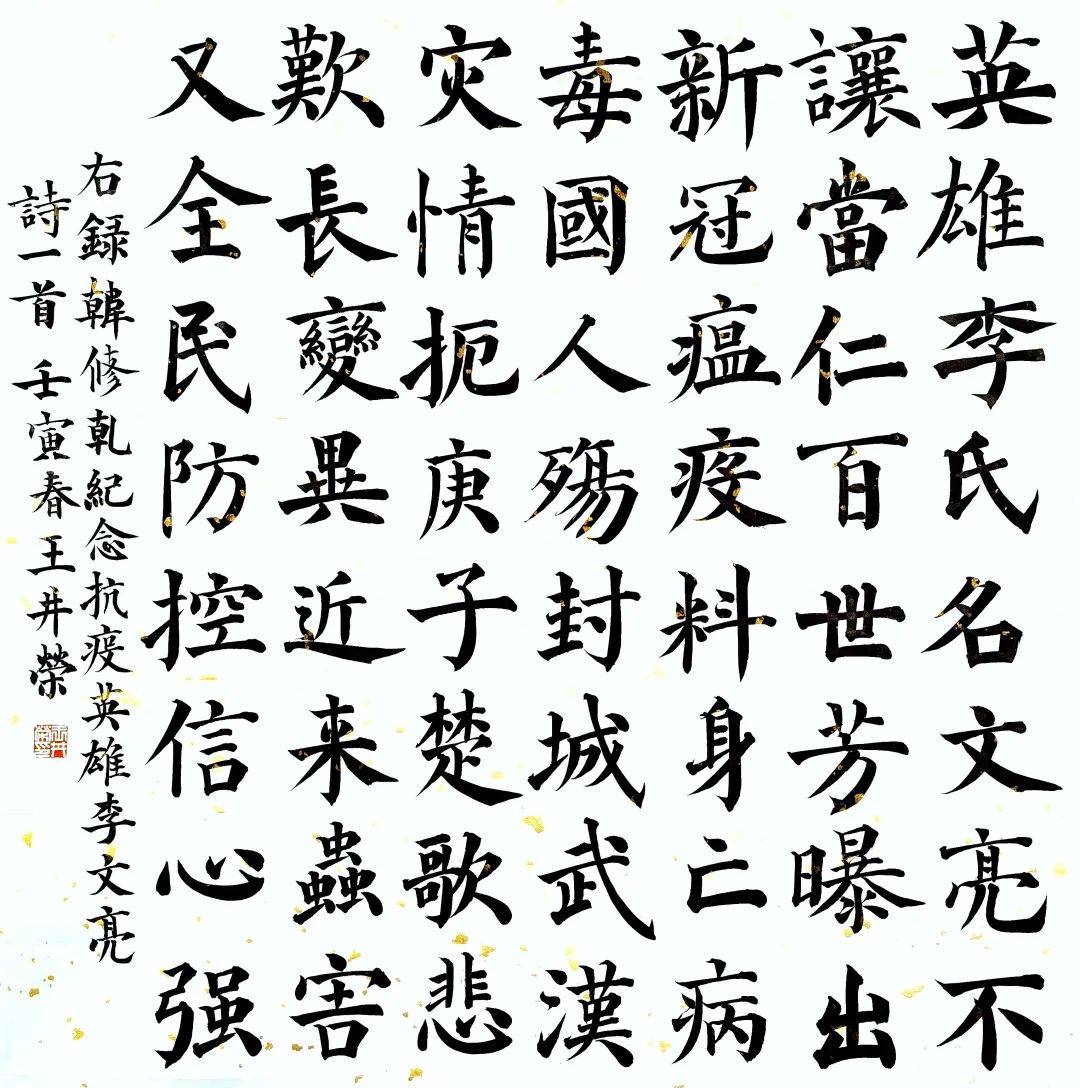 英雄李氏名文亮不
讓當仁百世芳曝出
新冠瘟疫料身亡病
毒國人殤封城武漢
灾情扼庚子楚歌悲
歎長變異近来蟲害
又全民防控信心强
右録韓修乹紀念抗疫英雄李文亮
詩一首壬寅春王井榮